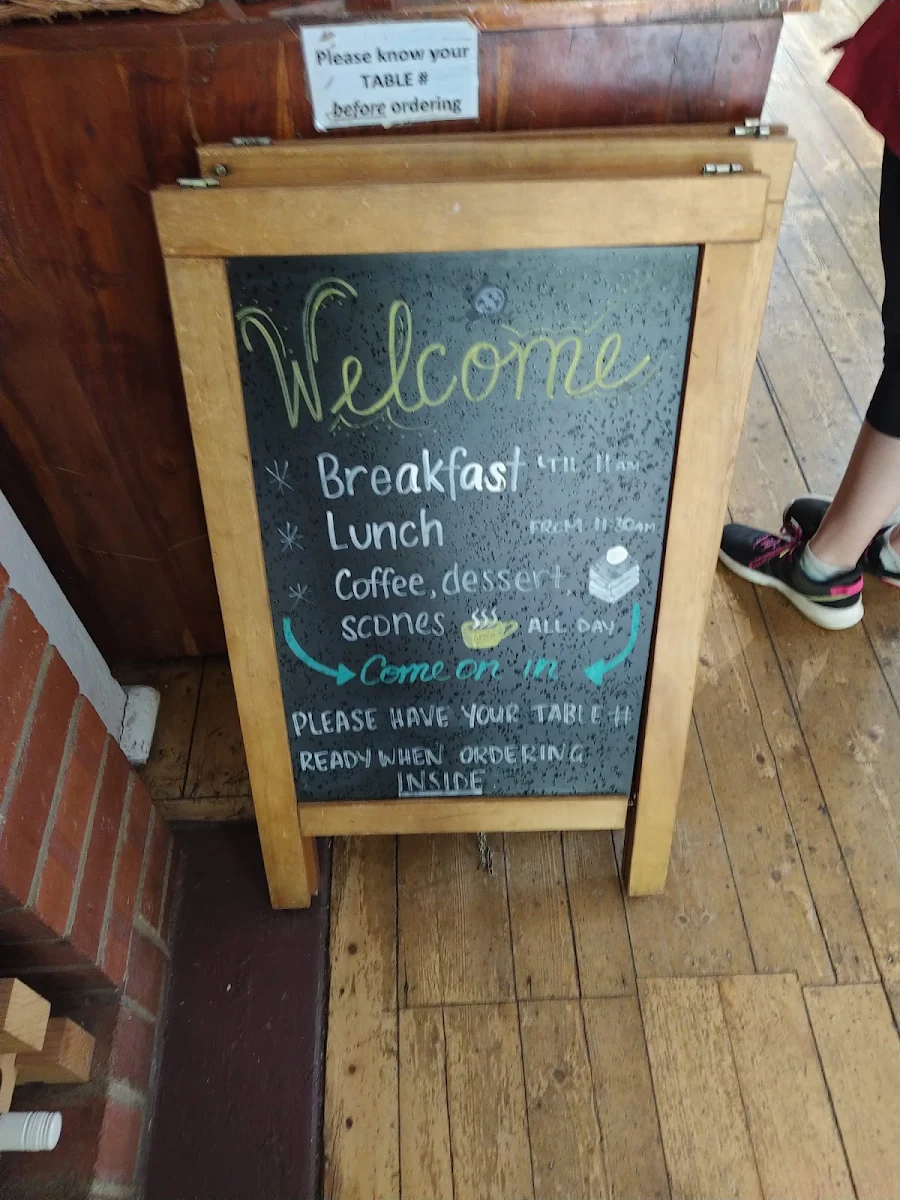 Please know your
TABLE #
before ordering
Welcome
Breakfast 'TIL 11AM
Lunch FROM 11:30AM
Coffee, dessert,
scones ALL DAY
Come on in
PLEASE HAVE YOUR TABLE #
READY WHEN ORDERING
INSIDE